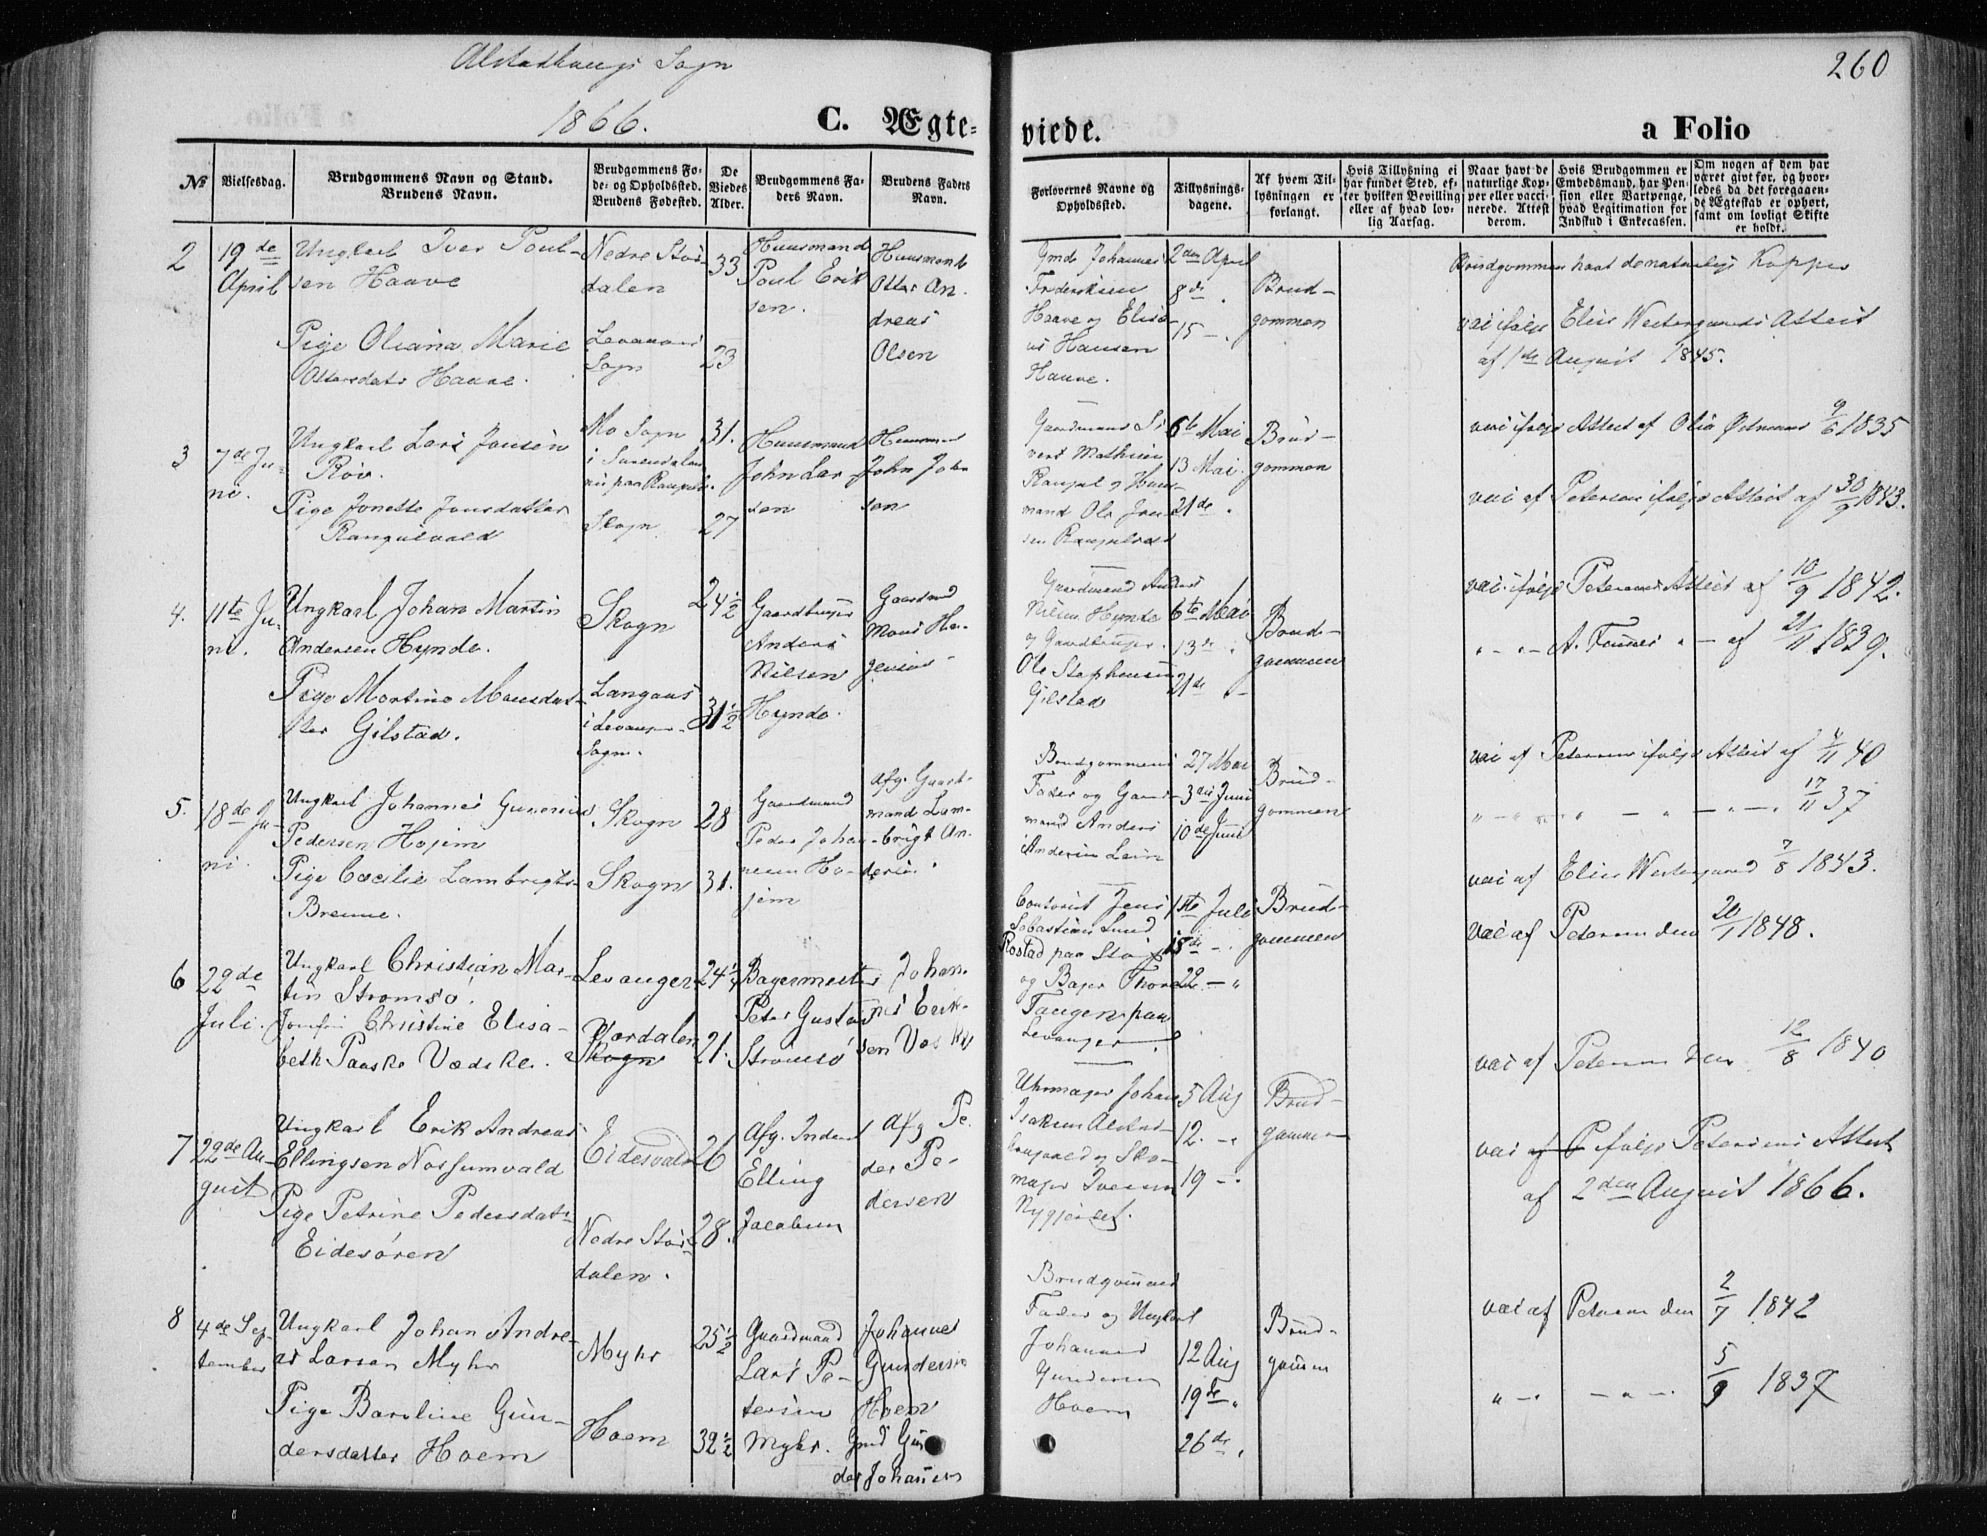 Alstadhaugs Sogn
260
1866.
C. Ægte=
viede.
a Folio
№
Vielsesdag.
Brudgommens Navn og Stand.
Brudens Navn.
Brudgommens Fo-
de- og Opholdssted.
Brudens Fødested.
De
Viedes
Alder.
Brudgommens Fa-
ders Navn.
Brudens Faders
Navn.
Forlovernes Navne og
Opholdssted.
Tillysnings-
dagene.
Af hvem Til-
lysningen er
forlangt.
Hvis Tillysning ei
har fundet Sted, ef-
ter hvilken Bevilling
eller af hvad lov-
lig Aarsag.
Naar havt de
naturlige Kop-
per eller vacci-
nerede. Attest
derom.
Hvis Brudgommen er
Embedsmand, har Pen-
sion eller Vartpenge,
hvad Legitimation for
Indskud i Enkecassen.
Om nogen af dem har
været givt før, og hvor-
ledes da det foregaaen-
de Ægteskab er ophørt,
samt om lovligt Skifte
er holdt.
2
19de
April
Ungkarl Iver Poul-
sen Haave
Pige Oliana Marie
Ottersdatr Haave.
Nedre Stør-
dalen
Levanger
Sogn
33
23
Huusmand
Poul Erik
sen.
Huusmand
Otter An-
dreas
Olsen
Gmd Johannes
Frederiksen
Haave og
Hansen
Haave.
2den April
8de
15 -
Brud-
gommen
Brudgommen havt de naturlige Kopper
vac ifølge Elias Westergaards Attest
af 1de August 1845.
3
7de Ju-
ni.
Ungkarl Lars Jonsen
Røv.
Pige Jonette Jonsdatter
Rangulvald
Mo Sogn
i Surendalen
Skogn
31.
27
Huusmand
John Lar-
sen
Huusmand
John John
sen
Gaardmand Si-
vert Mathisen
Ranjul og Huus-
mand Ole Jon-
sen
6te Mai
13 Mai
21de
Brud-
gommen
vac ifølge Attest af 9/6 1835
vac af Petersen ifølge Attest af 30/9 1843.
4.
11te Ju-
ni.
Ungkarl Johan Martin
Andersen Hynde.
Pige Martine Monsdat-
ter Gilstad.
Skogn
Langaas
i Levanger
Sogn.
24½
31½
Gaardbruger
Anders
Nielsen
Hynde.
Gaardmd
Mons Ha-
Gaardmand Anders
Nielsen Hynde
og Gaardbruger
Ole Stephensen
Gilstad
6te Mai
13de
21de
Brud-
gommen
vac. ifølge Petersens Attest af 10/9 1842.
" - " - A. Fannes " - af 21/11 1839.
5.
18de Ju-
ni
Ungkarl Johannes Gunerius
Pedersen Hojem
Pige Cæcilie Lambrigts-
Brenne.
Skogn
Skogn
28
31.
Gaardmand
Peder Johan-
nesen Ho-
jem
Afg. Gaard-
mand Lam-
brigt An-
dersen.
Brudgommens
Fader og Gaard-
mand Anders
Andersen Lein
27 Mai
3die Juni
10de Juni
Brud-
gommen
vac af Petersen ifølge Attest af 4/11 40
" - " - " - " - 17/11 37
6
22de
Juli.
Ungkarl Christian Mar-
tin Strømsø.
Jomfru Christine Elisa-
beth Paaske Vædske.
Levanger
Værdalen
Skogn
24¼
21.
Bagermester
Peter Gustav
Strømsø
Johan-
nes Erik-
sen
Contorist Jens
Sebastian Lund
Rostad paa
og Bager Thore
Tangen paa
Levanger.
1ste Juli
15de
22 - "
Brud-
gommen
vac af Elias Westergaard 7/8 1843.
vac af Petersen den 20/1 1848.
7
22de Au-
gust
Ungkarl Erik Andreas
Ellingsen Nossumvald
Pige Petrine Pedersdatr
Eidesøren
Eidesvald
Nedre Stør-
dalen.
26
28.
Afg. Inderst
Elling
Jacobsen
Afg Pe-
der Pe-
dersen
Uhrmager Johan
Isaksen Alstad-
haugvald og Sko-
mager Iversen
Nygjerdet.
5 Aug
12. - "
19 - "
Brud-
gommen
vac af Petersen den 12/8 1840
vac af P ifølge Petersens Attest
af 2den August 1866.
8
4de Sep-
tember
Ungkarl Johan Andre-
as Larsen Myhr
Pige Baroline Gun-
dersdatter Hoem
Myhr
Hoem
25½
32½
Gaardmand
Lars Pe-
tersen
Myhr.
Johannes
Gundersen
Hoem
Gmd Gun
der Johansen
Brudgommens
Fader og Ungkarl
Johannes
Gundersen
Hoem
12 Aug
19de "
26de "
Brud-
gommen
vac af Petersen den 2/7 1842
" - " - " - 5/9 1837